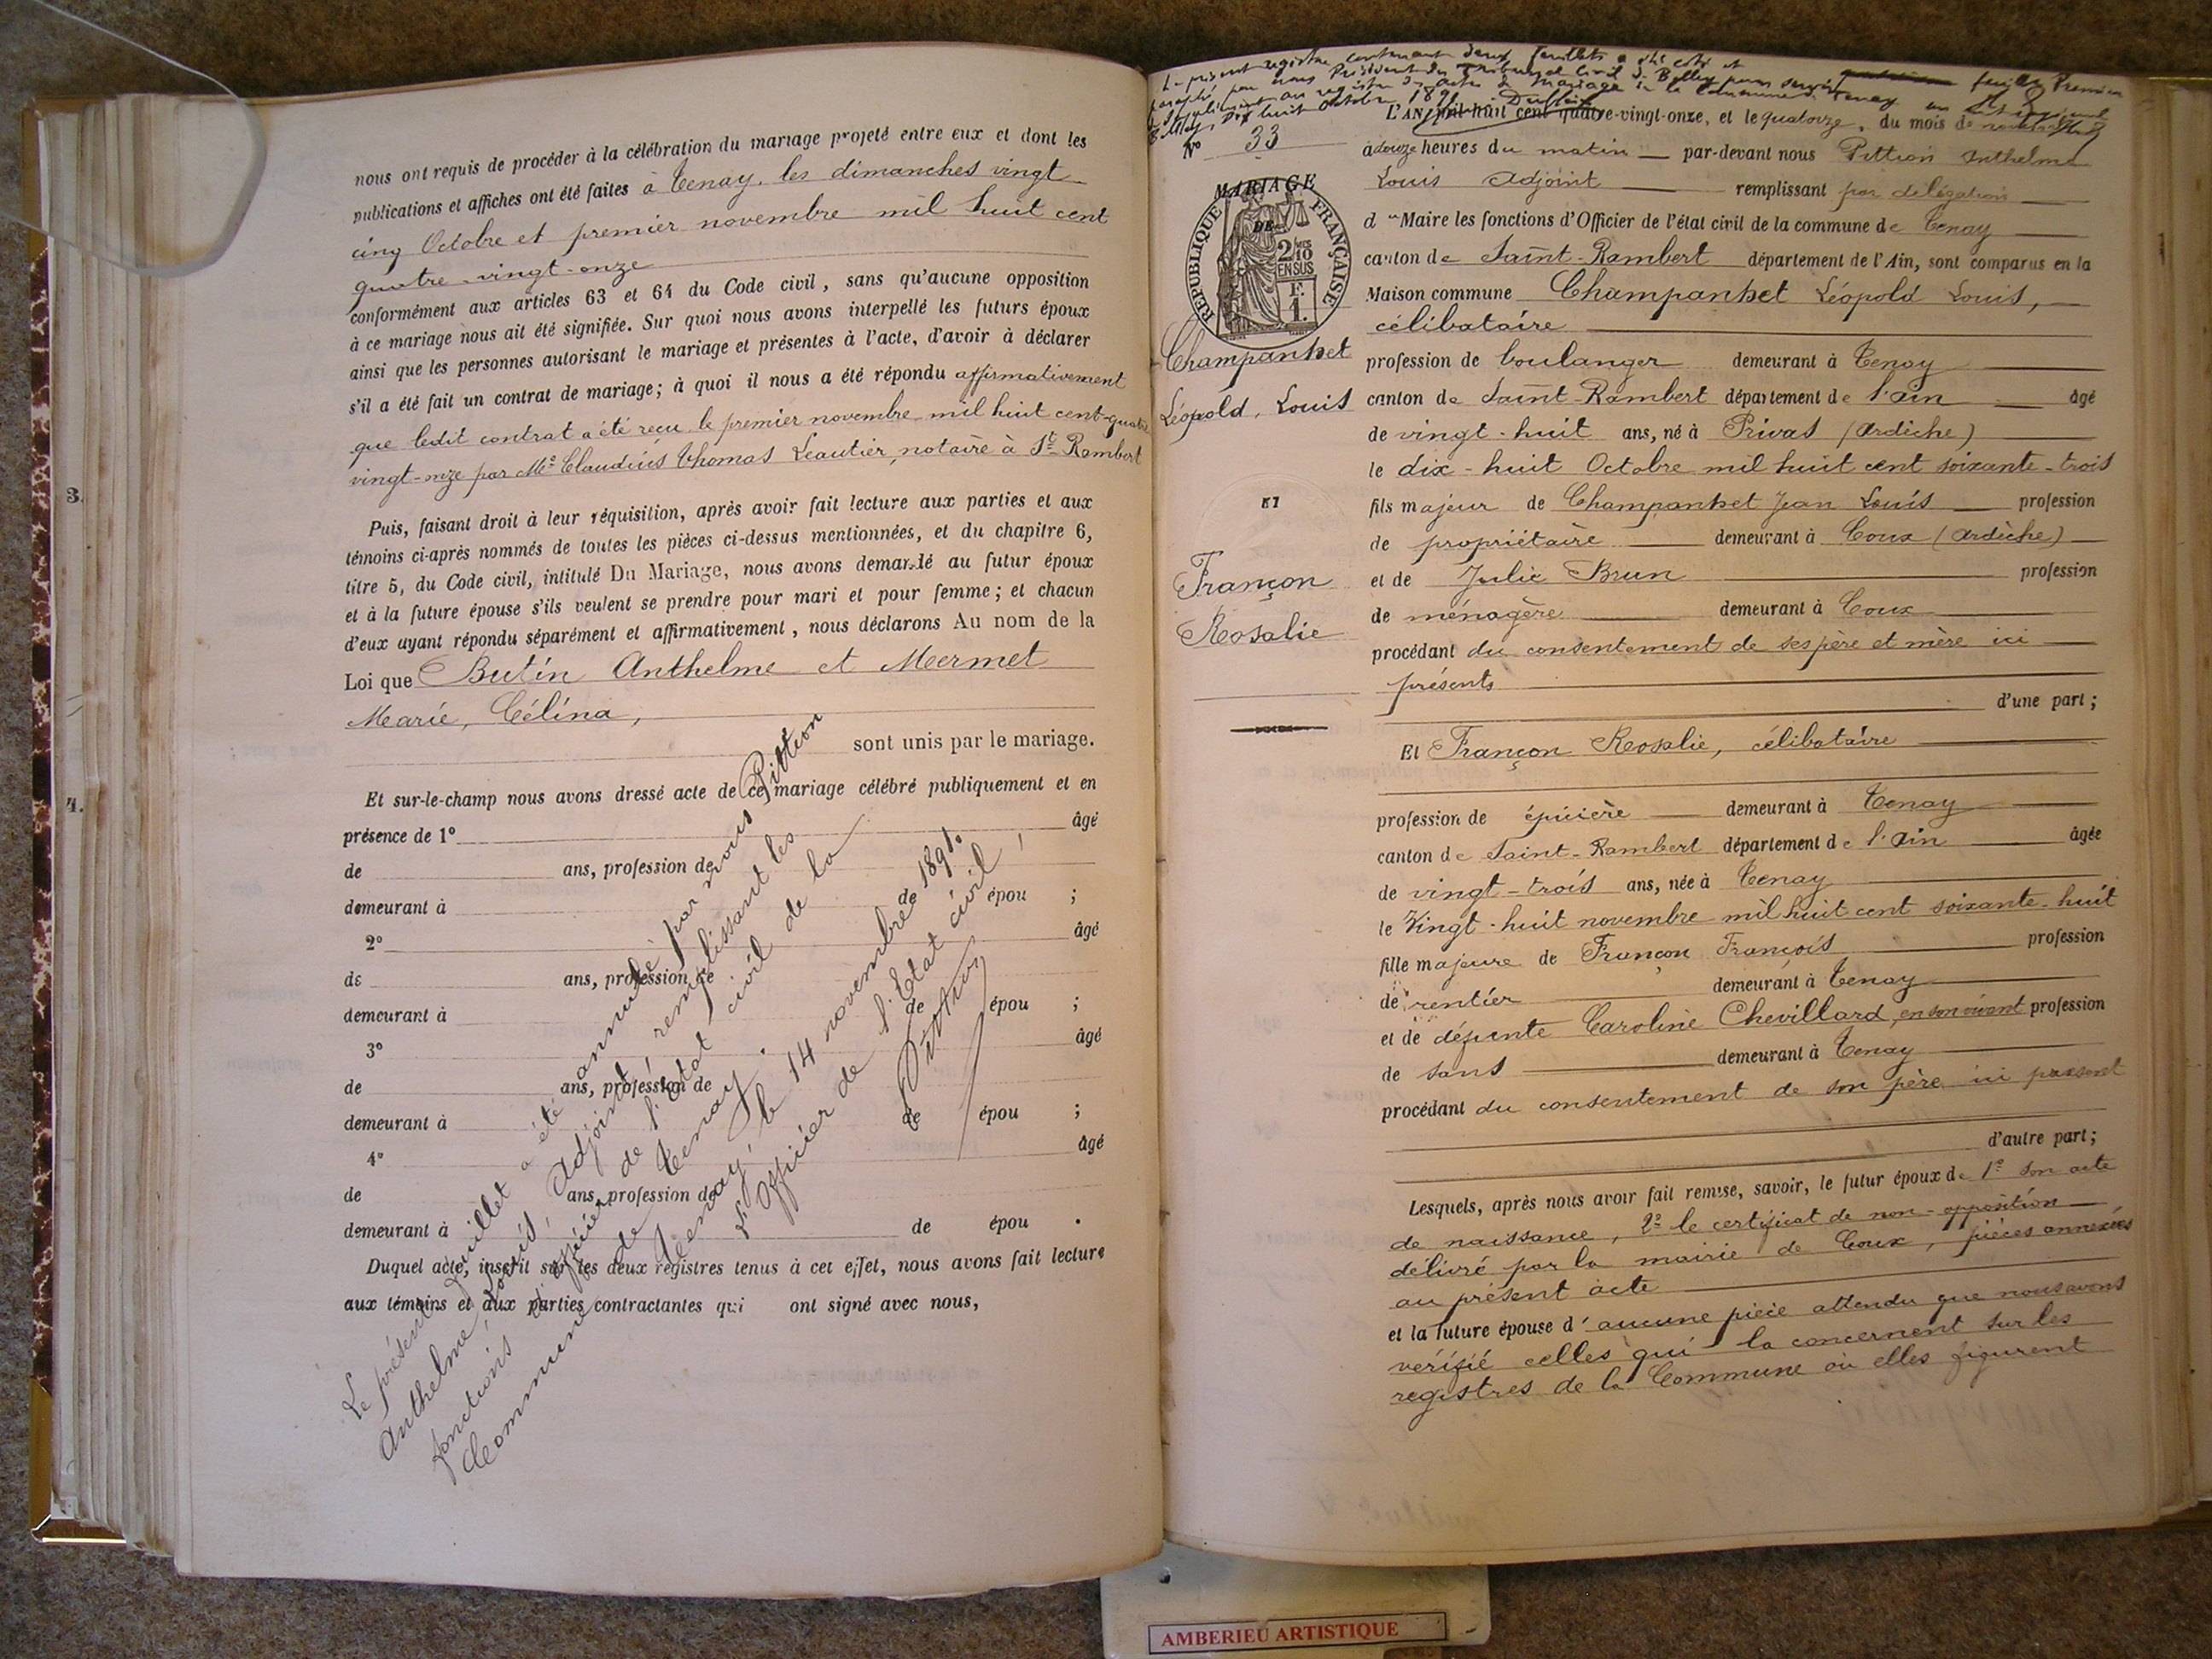 nous ont requis de procéder à la célébration du mariage projeté entre eux et dont les
publications et affiches ont été faites à Tenay, les dimanches vingt
cinq Octobre et premier novembre mil huit cent
quatre-vingt-onze
conformément aux articles 63 et 64 du Code civil, sans qu'aucune opposition
à ce mariage nous ait été signifiée. Sur quoi nous avons interpellé les futurs époux
ainsi que les personnes autorisant le mariage et présentes à l'acte, d'avoir à déclarer
s'il a été fait un contrat de mariage; à quoi il nous a été répondu affirmativement
que ledit contrat a été reçu le premier novembre mil huit cent-quatre
vingt-onze par Me Claudius Thomas Leautier, notaire à St Rambert
3.
Puis, faisant droit à leur réquisition, après avoir fait lecture aux parties et aux
témoins ci-après nommés de toutes les pièces ci-dessus mentionnées, et du chapitre 6,
titre 5, du Code civil, intitulé Du Mariage, nous avons demandé au futur époux
et à la future épouse s'ils veulent se prendre pour mari et pour femme; et chacun
d'eux ayant répondu séparément et affirmativement, nous déclarons Au nom de la
Loi que Butin Anthelme et Mermet
Marie, Célina,
sont unis par le mariage.
4.
Et sur-le-champ nous avons dressé acte de ce mariage célébré publiquement et en
présence de 1° âgé
de ans, profession de
demeurant à de épou ;
2° âgé
de ans, profession de
demeurant à de épou ;
3° âgé
de ans, profession de
demeurant à de épou ;
4° âgé
de ans, profession de
demeurant à de épou .
Duquel acte, inscrit sur les deux registres tenus à cet effet, nous avons fait lecture
aux témoins et aux parties contractantes qui ont signé avec nous,
Le présent feuillet a été annulé par nous Pittion
Anthelme, Louis, Adjoint, remplissant les
fonctions d'officier de l'Etat civil de la
Commune de Tenay.
Tenay, le 14 novembre 1891.
L'Officier de l'Etat civil,
Pittion
Le présent registre contenant deux feuillets a été coté et
paraphé par nous Président du Tribunal Civil de Belley pour servir feuillet Premier
de supplément au registre des actes de Mariage de la Commune de Tenay
Belley, Dix huit Octobre 1891
N° 33
MARIAGE
REPUBLIQUE FRANÇAISE
DE
2/10
EN SUS
F.
1.
Champanhet
Léopold, Louis
ET
Françon
Rosalie
L'AN mil-huit cent quatre-vingt-onze, et le quatorze, du mois de novembre
à douze heures du matin par-devant nous Pittion Anthelme
Louis Adjoint remplissant par délégation
du Maire les fonctions d'Officier de l'état civil de la commune de Tenay
canton de Saint-Rambert département de l'Ain, sont comparus en la
Maison commune Champanhet Léopold Louis,
célibataire
profession de boulanger demeurant à Tenay
canton de Saint-Rambert département de l'Ain âgé
de vingt-huit ans, né à Privas (Ardèche)
le dix-huit Octobre mil huit cent soixante-trois
fils majeur de Champanhet Jean Louis profession
de propriétaire demeurant à Coux (Ardèche)
et de Julie Brun profession
de ménagère demeurant à Coux
procédant du consentement de ses père et mère ici
présents
d'une part;
Et Françon Rosalie, célibataire
profession de épicière demeurant à Tenay
canton de Saint-Rambert département de l'Ain âgée
de vingt-trois ans, née à Tenay
le Vingt-huit novembre mil huit cent soixante-huit
fille majeure de Françon François profession
de rentier demeurant à Tenay
et de défunte Caroline Chevillard, en son vivant profession
de sans demeurant à Tenay
procédant du consentement de son père ici présent
d'autre part;
Lesquels, après nous avoir fait remise, savoir, le futur époux de 1° son acte
de naissance, 2° le certificat de non-opposition
délivré par la mairie de Coux, pièces annexées
au présent acte
et la future épouse d'aucune pièce attendu que nous avons
vérifié celles qui la concernent sur les
registres de la Commune où elles figurent
AMBERIEU ARTISTIQUE